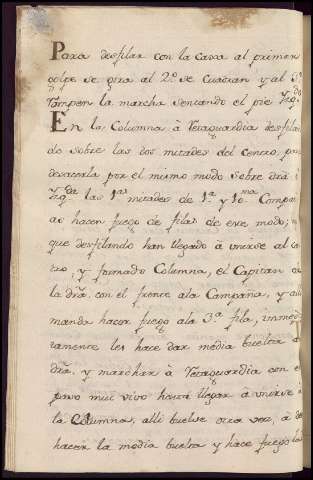 Para desfilar con la Caxa al primer
golpe se gira al 2º se Cuadran y al 3º
rompen la marcha sentando el pie Yzqdo
En la Columna à Retaguardia desfilan
do sobre las dos mitades del centro, para
desacerla por el mismo modo sobre drã è
Yzqda las 1as mitades de 1ª y 10ma Compa
as hacen fuego de filas de este modo;
que desfilando han llegado à unirse al cen
tro, y formado Columna, el Capitan de
la drã con el frente ala Campaña, y
manda hacer fuego ala 3ª fila, immedia
tamente les hace dar media buelta a
drã, y marchàr à Retaguardia con el
paso mui vivo hasta llegar à unirse à
la Columna, alli buelve otra vez, à
hacer la media buelta y hace fuego la